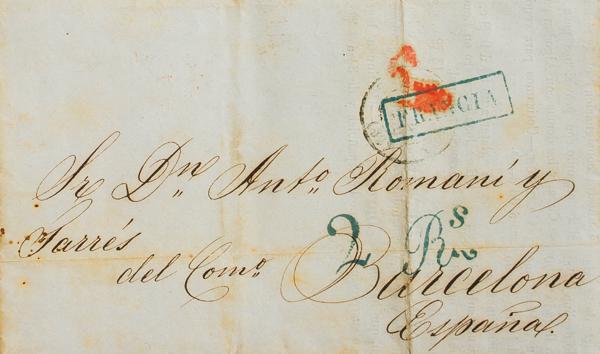 FRANCIA
Sr Dn Anto Romaní y
Tarrés
2 Rs
del Como Barcelona
España